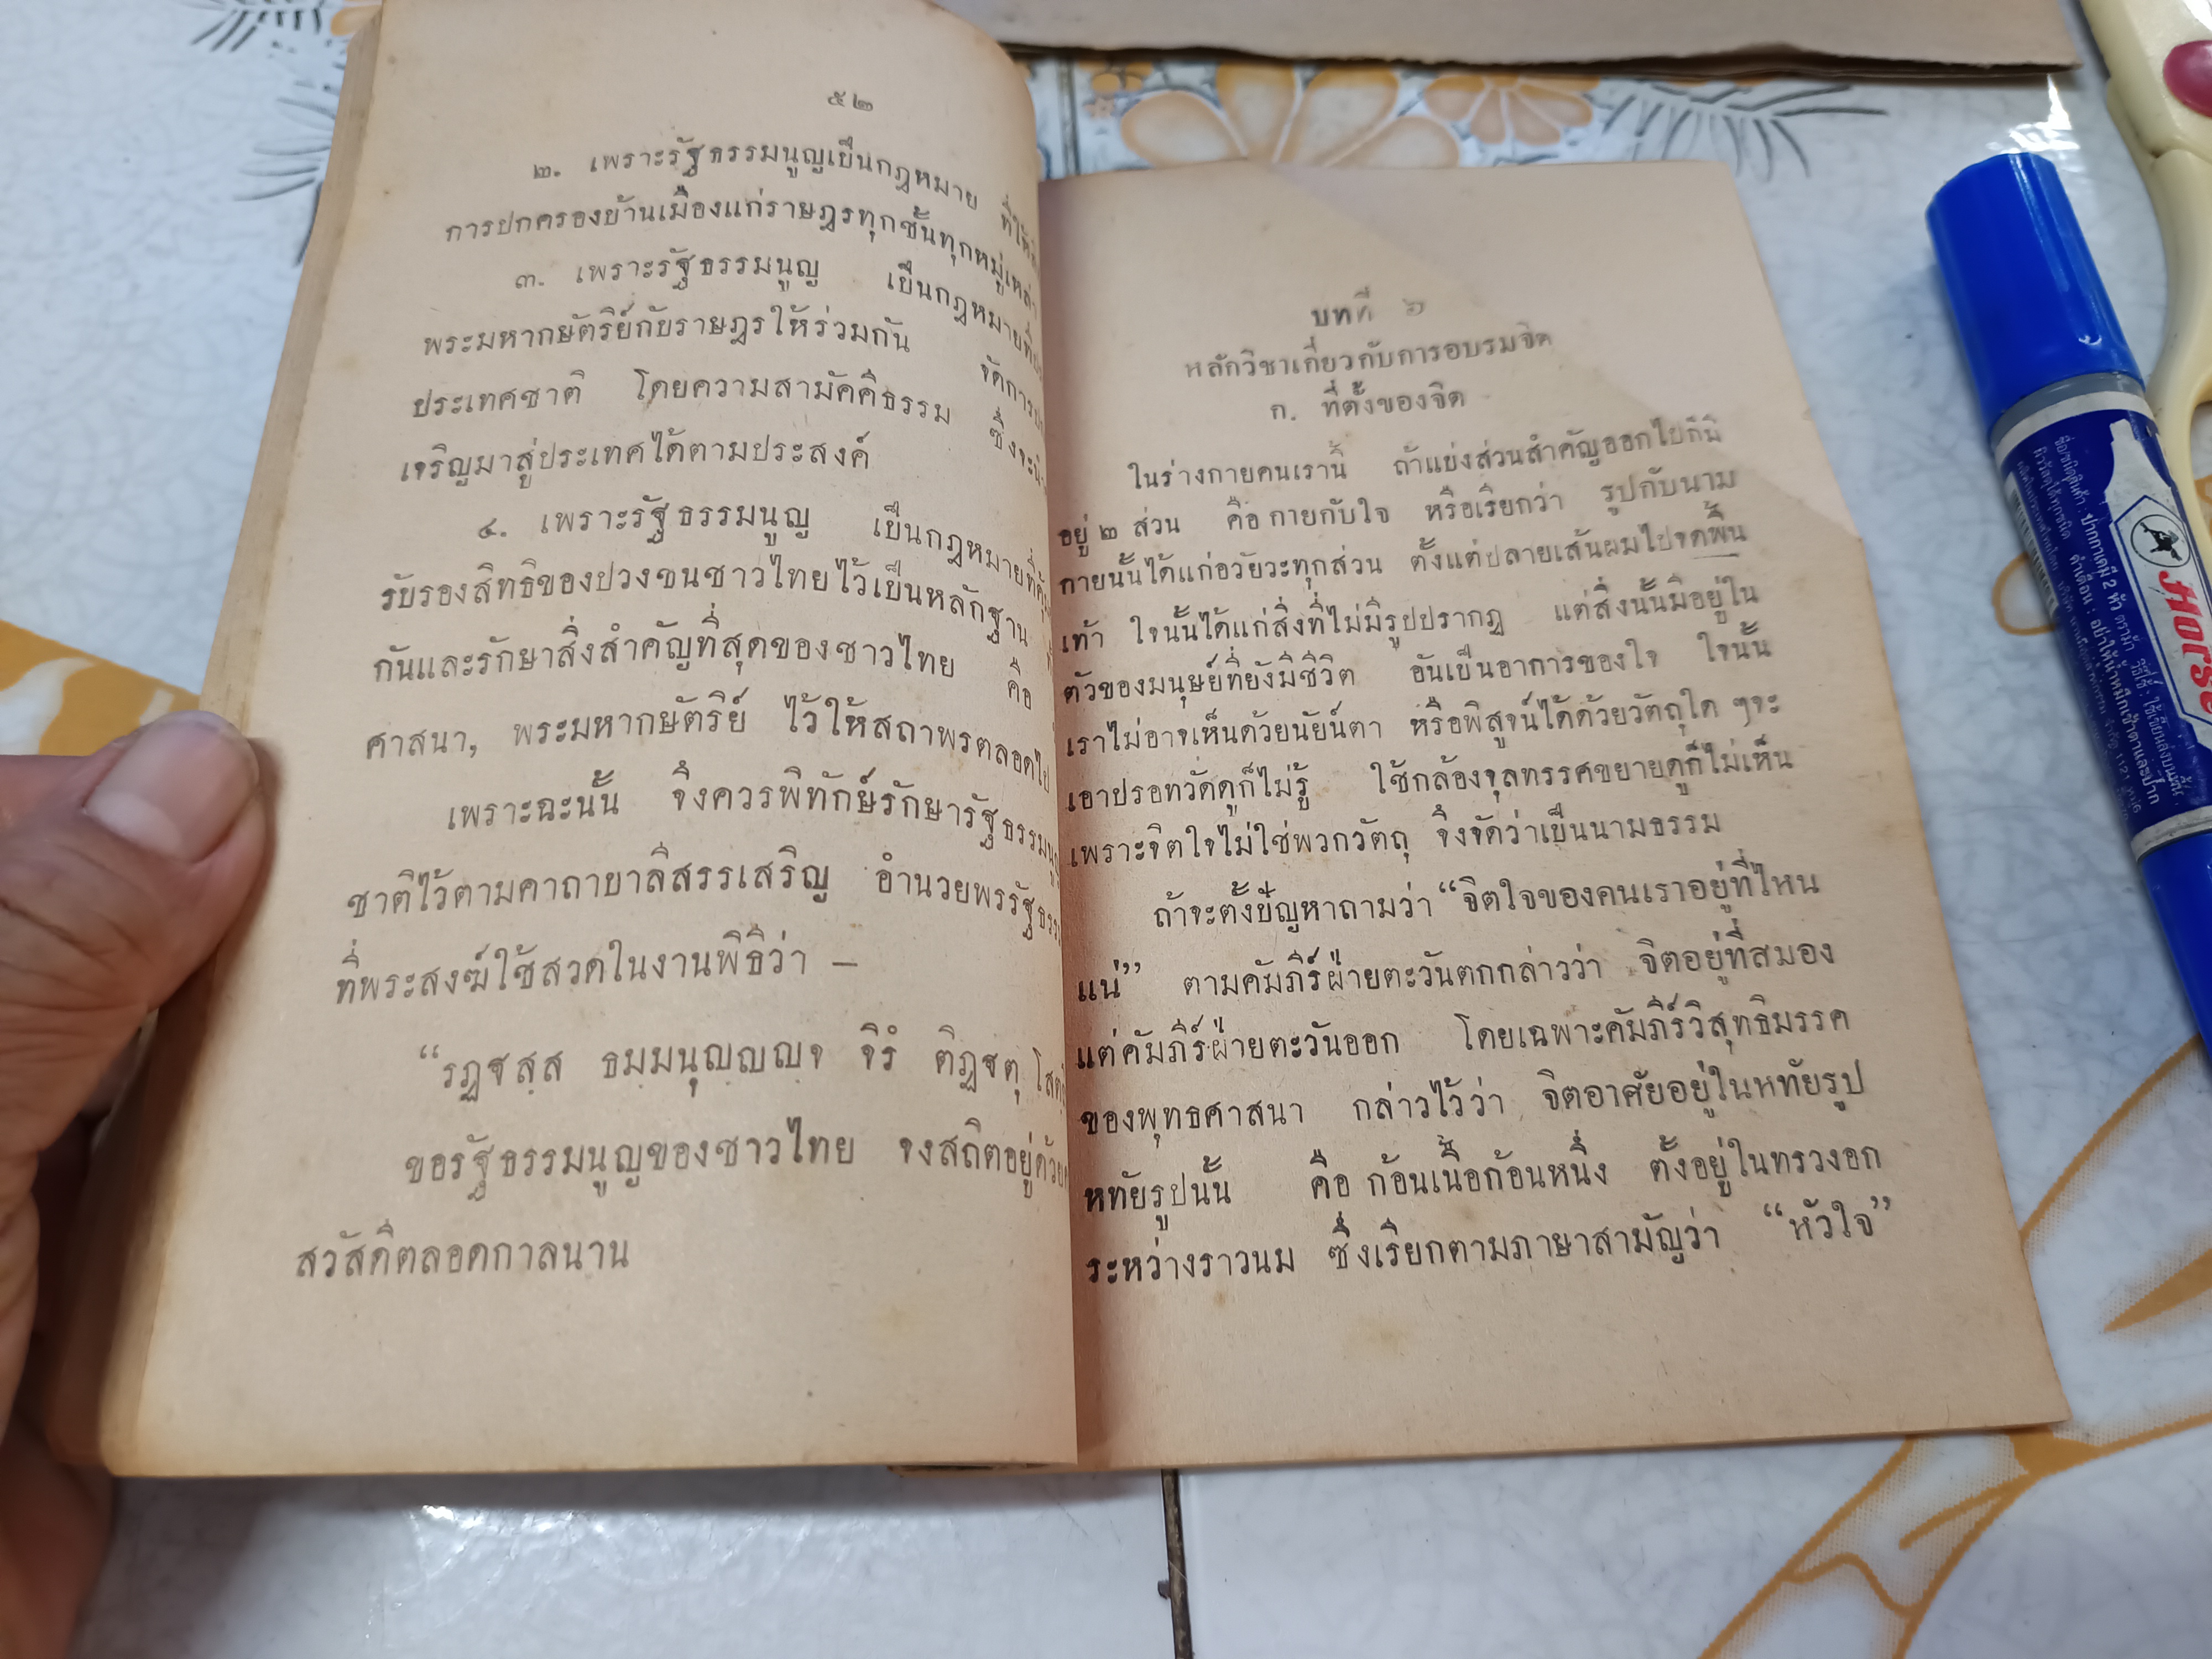 ๕๒
๒. เพราะรัฐธรรมนูญเป็นกฎหมาย
การปกครองบ้านเมืองแก่ราษฎรทุกชั้นทุกหมู่เหล่า
๓. เพราะรัฐธรรมนูญ เป็นกฎหมาย
พระมหากษัตริย์กับราษฎรให้ร่วมกัน
ประเทศชาติ โดยความสามัคคีธรรม
เจริญมาสู่ประเทศได้ตามประสงค์
๔. เพราะรัฐธรรมนูญ เป็นกฎหมาย
รับรองสิทธิของปวงชนชาวไทยไว้เป็นหลักฐาน
กันและรักษาสิ่งสำคัญที่สุดของชาวไทย คือ
ศาสนา, พระมหากษัตริย์ ไว้ให้สถาพรตลอดไป
เพราะฉะนั้น จึงควรพิทักษ์รักษา
ชาติไว้ตามคาถาบาลีสรรเสริญ อำนวยพร
ที่พระสงฆ์ใช้สวดในงานพิธีว่า —
“รฏฺฐสฺส ธมฺมนุญฺญญฺจ จิรํ ติฏฺฐตุ
ขอรัฐธรรมนูญของชาวไทย จงสถิตอยู่
สวัสดีตลอดกาลนาน
บทที่ ๖
หลักวิชาเกี่ยวกับการอบรมจิต
ก. ที่ตั้งของจิต
ในร่างกายคนเรานี้ ถ้าแบ่งส่วนสำคัญออกไปก็มี
อยู่ ๒ ส่วน คือ กายกับใจ หรือเรียกว่า รูปกับนาม
กายนั้นได้แก่อวัยวะทุกส่วน ตั้งแต่ปลายเส้นผมไปจดพื้น
เท้า ใจนั้นได้แก่สิ่งที่ไม่มีรูปปรากฏ แต่สิ่งนั้นมีอยู่ใน
ตัวของมนุษย์ที่ยังมีชีวิต อันเป็นอาการของใจ ใจนั้น
เราไม่อาจเห็นด้วยนัยน์ตา หรือพิสูจน์ได้ด้วยวัตถุใด ๆจะ
เอาปรอทวัดดูก็ไม่รู้ ใช้กล้องจุลทรรศขยายดูก็ไม่เห็น
เพราะจิตใจไม่ใช่พวกวัตถุ จึงจัดว่าเป็นนามธรรม
ถ้าจะตั้งปัญหาถามว่า “จิตใจของคนเราอยู่ที่ไหน
แน่” ตามคัมภีร์ฝ่ายตะวันตกกล่าวว่า จิตอยู่ที่สมอง
แต่คัมภีร์ฝ่ายตะวันออก โดยเฉพาะคัมภีร์วิสุทธิมรรค
ของพุทธศาสนา กล่าวไว้ว่า จิตอาศัยอยู่ในหทัยรูป
หทัยรูปนั้น คือ ก้อนเนื้อก้อนหนึ่ง ตั้งอยู่ในทรวงอก
ระหว่างราวนม ซึ่งเรียกตามภาษาสามัญว่า “หัวใจ”